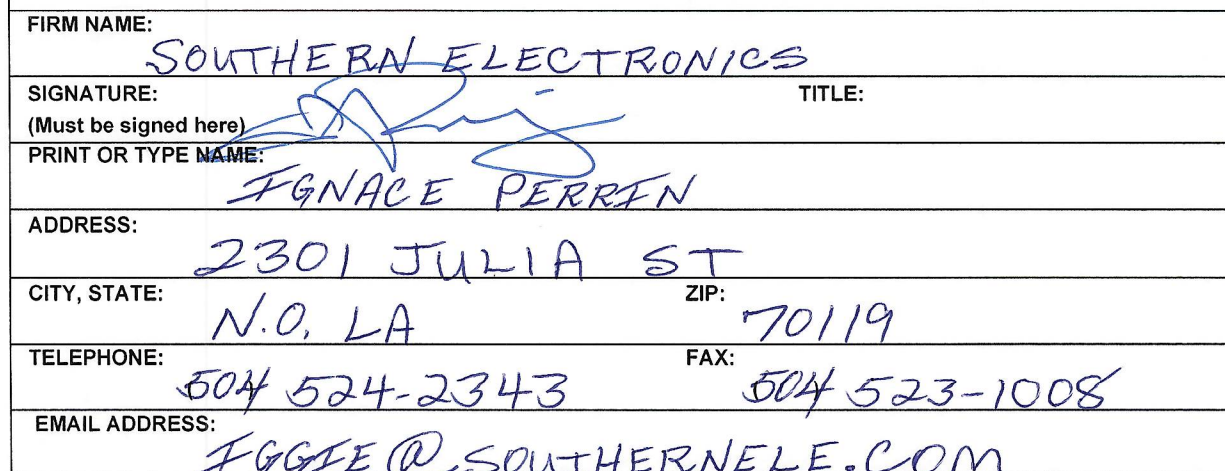 FIRM NAME:
SOUTHERN ELECTRONICS
SIGNATURE: TITLE:
(Must be signed here)
PRINT OR TYPE NAME:
IGNACE PERRIN
ADDRESS:
2301 JULIA ST
CITY, STATE: ZIP:
N.O. LA 70119
TELEPHONE: FAX:
504 524-2343 504 523-1008
EMAIL ADDRESS:
IGGIE@SOUTHERNELE.COM